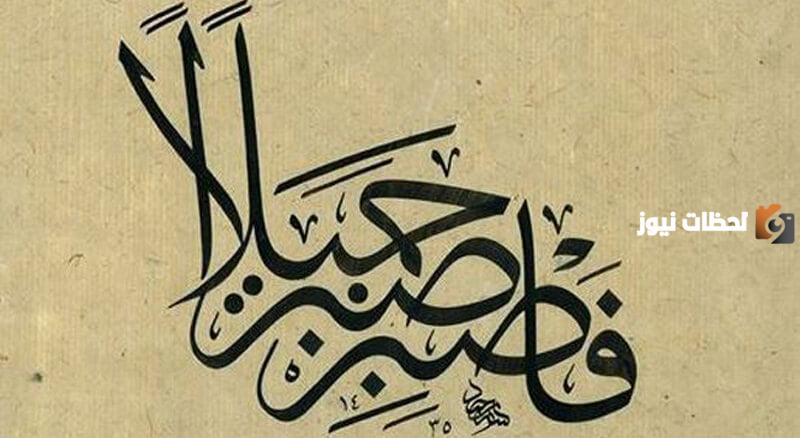 فَاصْبِرْ صَبْرًا جَمِيلًا
لحظات نيوز
١٤
٣٥